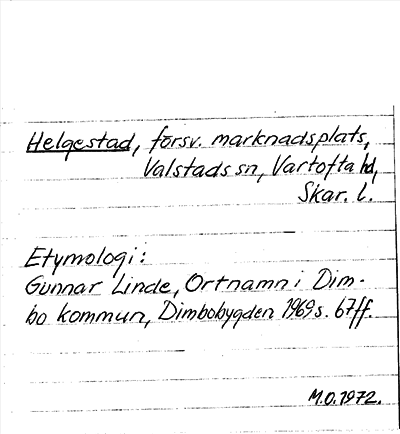 Helgestad, försv. marknadsplats,
Valstads sn, Vartofta hd,
Skar. l.
Etymologi:
Gunnar Linde, Ortnamn i Dim-
bo kommun, Dimbobygden 1969 s. 67ff.
M.O. 1972.